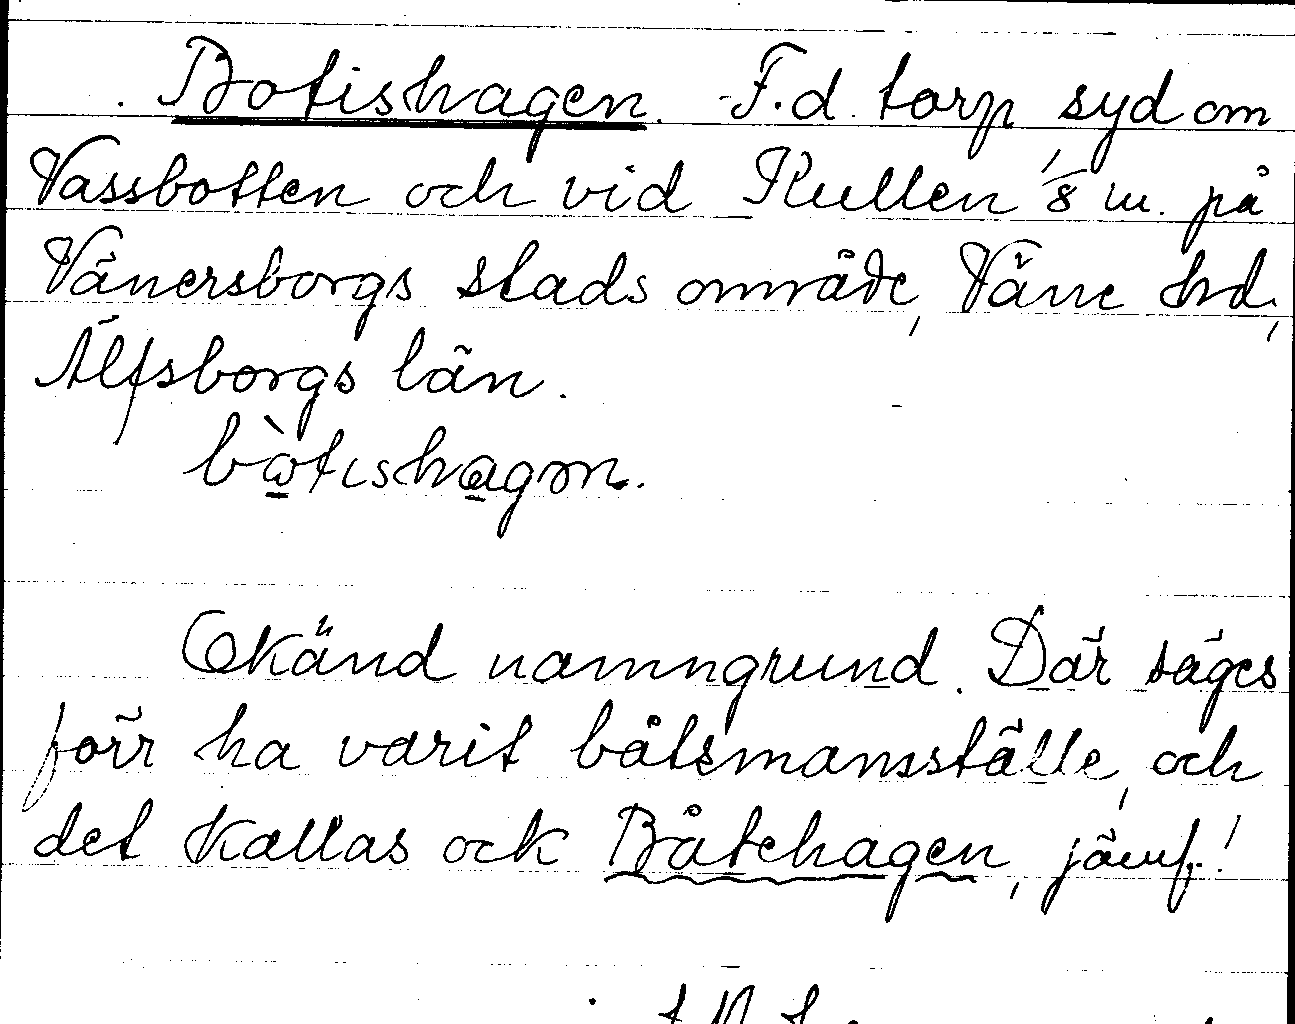 Botishagen. F.d. torp syd om
Vassbotten och vid Kullen 1/8 m. på
Vänersborgs stads område, Väne hd,
Älfsborgs län.
bòtɩshagən.
Okänd namngrund. Där säges
förr ha varit båtsmansställe, och
det kallas ock Båtehagen, jämf.!